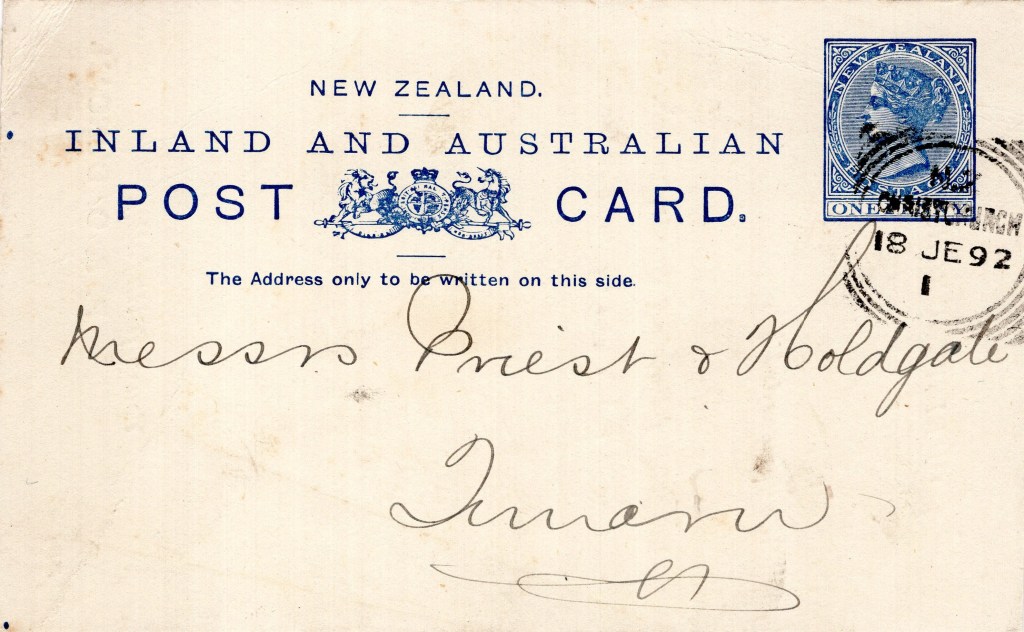 NEW ZEALAND.
INLAND AND AUSTRALIAN
POST CARD.
The Address only to be written on this side.
NEW ZEALAND
CHRISTCHURCH
18 JE 92
1
Messrs Priest & Holdgate
Timaru